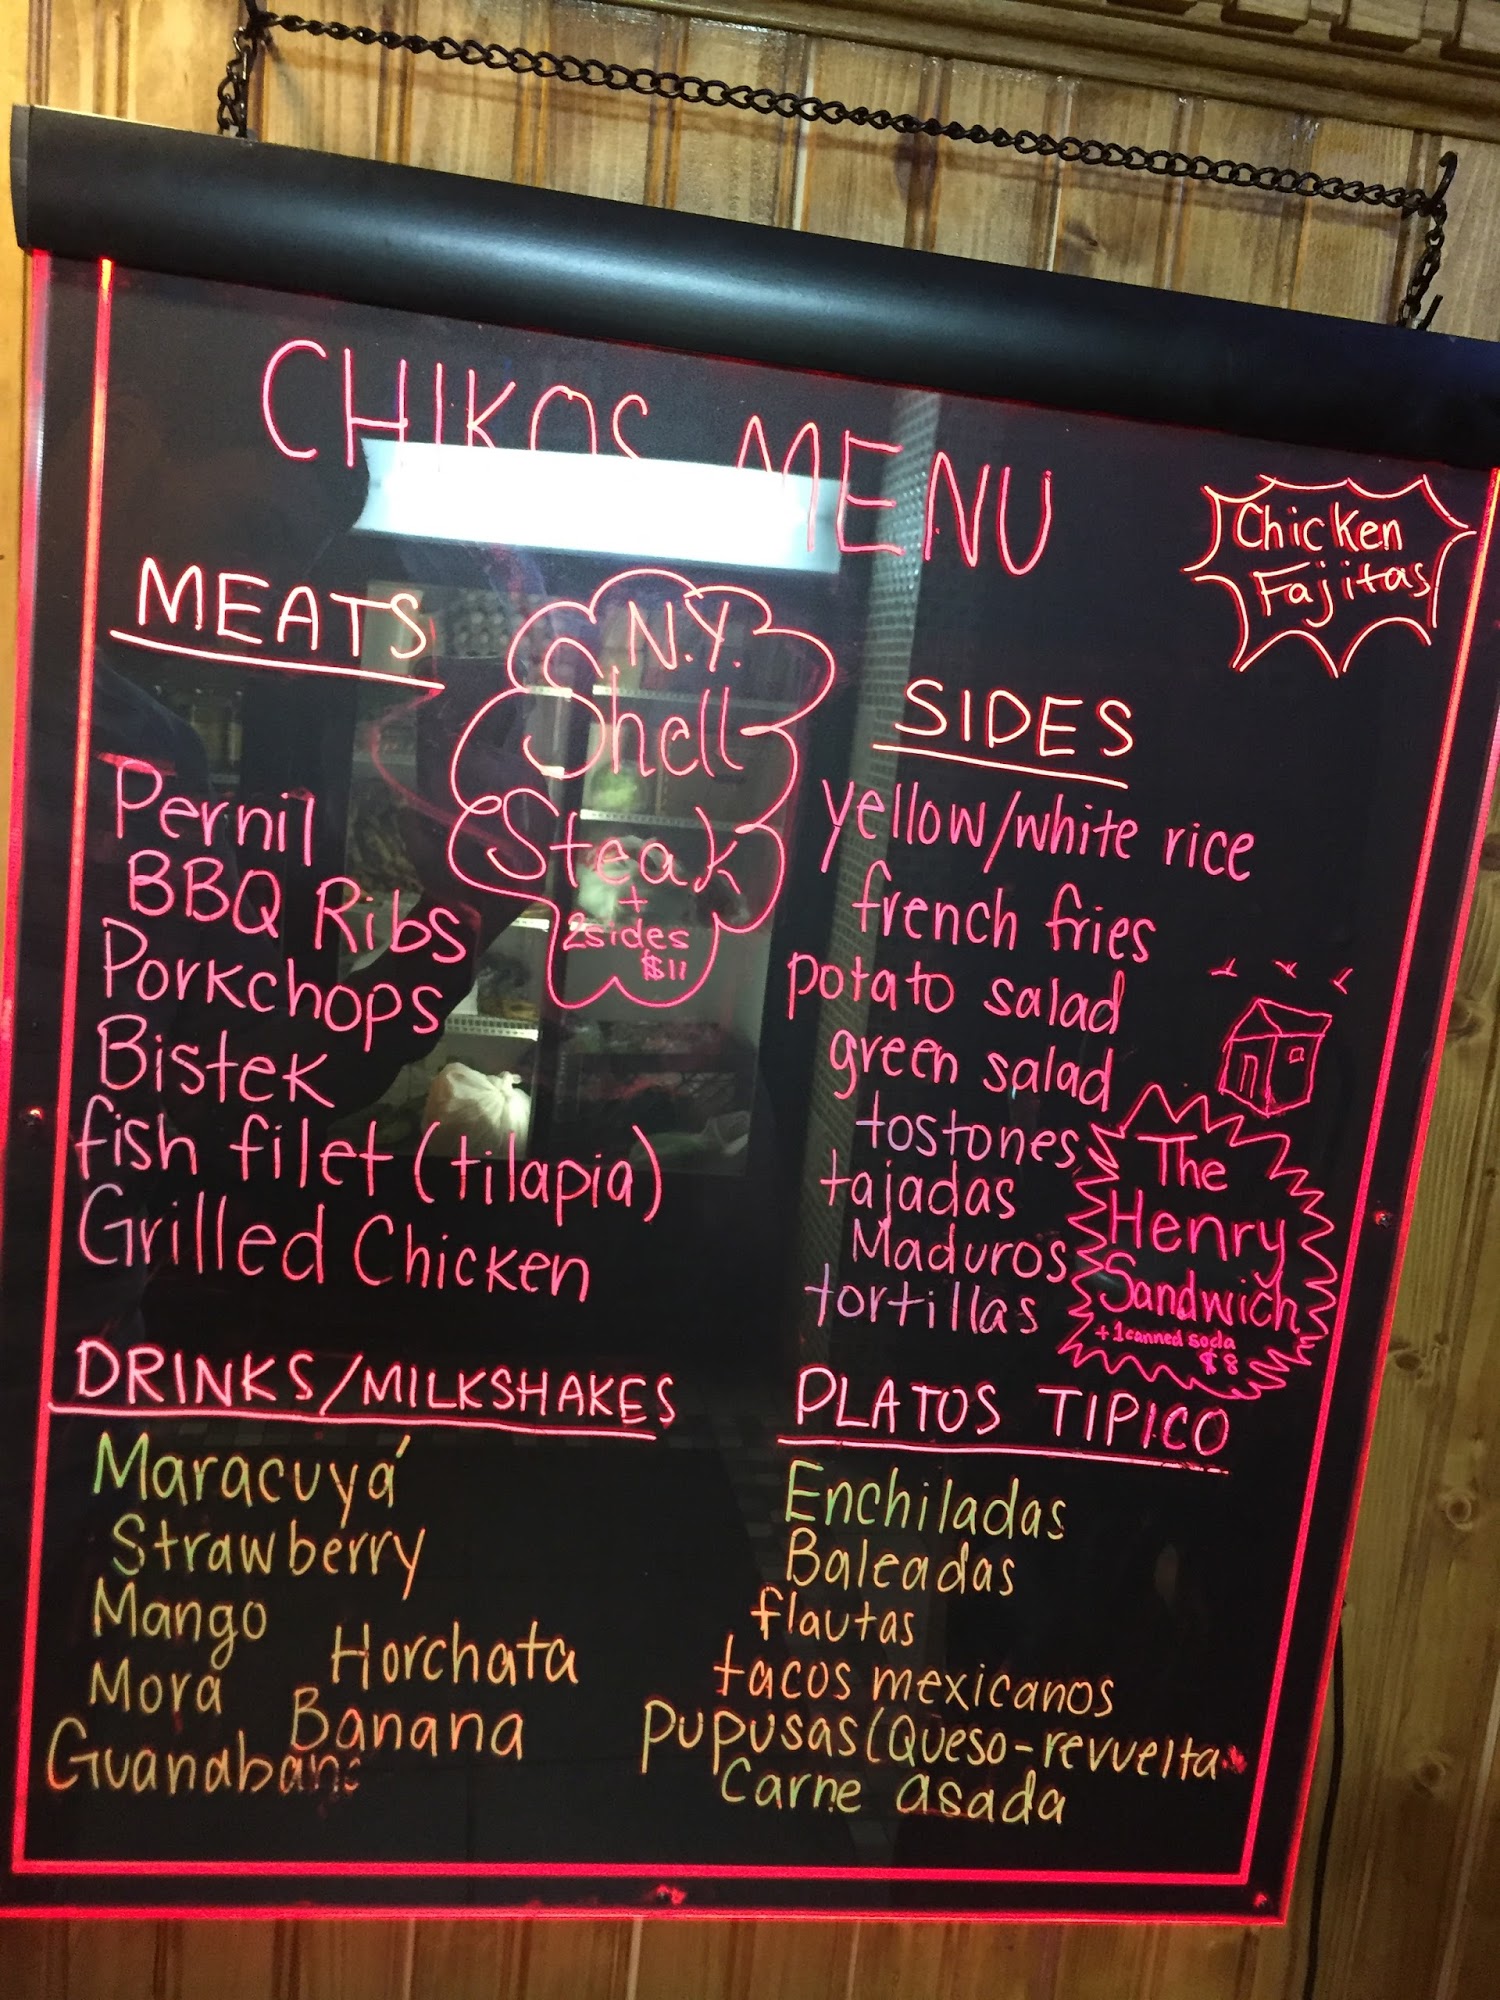 CHIKOS MENU
Chicken
Fajitas
MEATS
Pernil
BBQ Ribs
Porkchops
Bistek
fish filet (tilapia)
Grilled Chicken
N.Y.
Shell
Steak
+
2sides
$11
SIDES
yellow/white rice
french fries
potato salad
green salad
tostones
tajadas
Maduros
tortillas
The
Henry
Sandwich
+1canned soda
$8
DRINKS/MILKSHAKES
Maracuyá
Strawberry
Mango
Horchata
Mora
Banana
Guanabana
PLATOS TIPICO
Enchiladas
Baleadas
flautas
tacos mexicanos
pupusas(Queso-revuelta
Carne asada